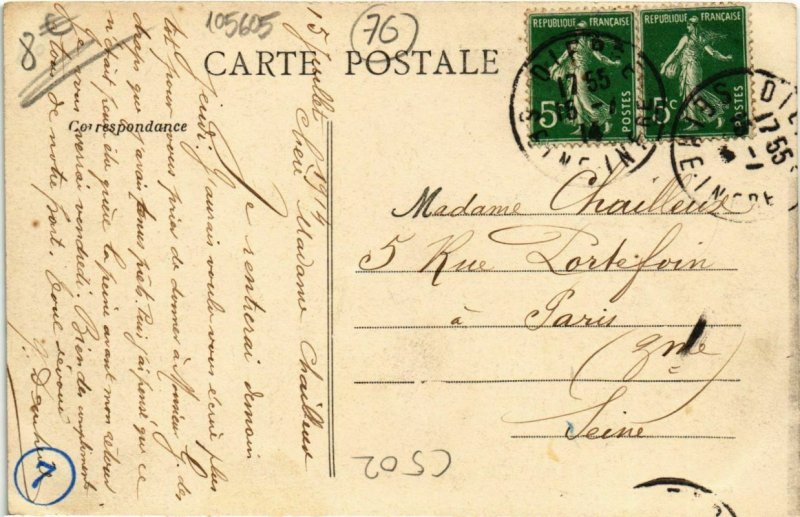 8€
105605
76
CARTE POSTALE
Correspondance
REPUBLIQUE FRANÇAISE
5c
POSTES
REPUBLIQUE FRANÇAISE
5c
POSTES
DIEPPE
17 55
15 -1
14
SEINE INFRE
17 55
SEINE INFRE
Madame Chailleux
5 Rue Portefoin
à Paris
(3me)
Seine
15 juillet 1914
Chère Madame Chailleux
Je rentrerai demain
jeudi. J'aurais voulu vous écrire plus
tôt pour vous prier de donner à Monsieur G. des
draps que j'avais tenus prêts. Puis j'ai pensé que ce
n'était peut-être guère la peine avant mon retour
Je vous verrai vendredi. Bien des compliments
à tous de notre part. Tout dévoué
C502